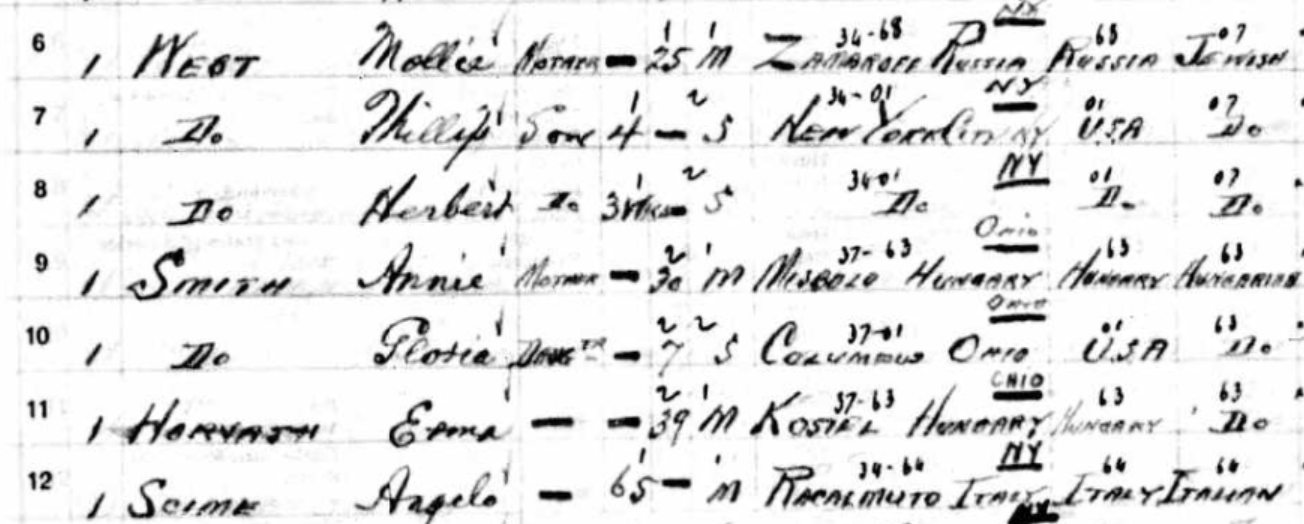 NY
6 1 WEST Mollie MOTHER — 25 M 34-68 RUSSIA 68 RUSSIA 07 JEWISH
NY
7 1 Do Phillip Son 4 — S 34-01 NEW YORK CITY NY 01 USA 07 Do
NY
8 1 Do Herbert Do S 3401 Do 01 Do 07 Do
OHIO
9 1 SMITH Annie MOTHER — 30 M 37-63 HUNGARY 63 HUNGARY 63 HUNGARIAN
OHIO
10 1 Do — 7 S 37-01 COLUMBUS OHIO 01 USA 63 Do
OHIO
11 1 HORVATH — — 39 M 37-63 HUNGARY 63 HUNGARY 63 Do
NY
12 1 Angelo — 65 — M 34-64 RACALMUTO ITALY 64 ITALY 64 ITALIAN
NY